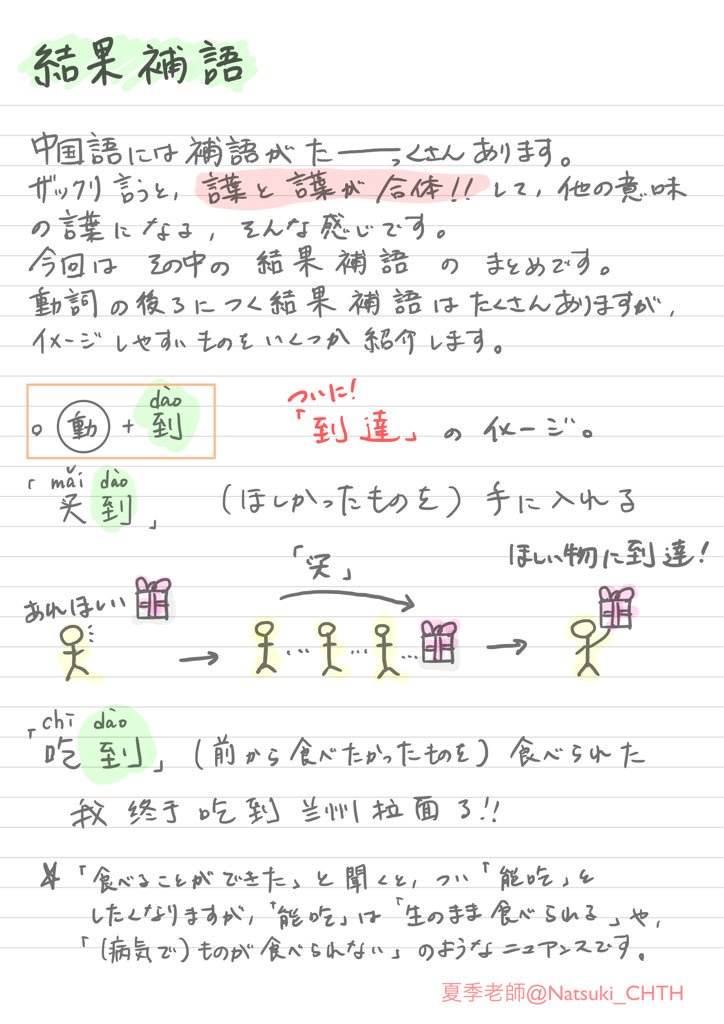 結果補語
中国語には補語がたーーっくさんあります。
ザックリ言うと、言葉と言葉が合体!!して、他の意味
の言葉になる、そんな感じです。
今回はその中の結果補語のまとめです。
動詞の後ろにつく結果補語はたくさんありますが、
イメージしやすいものをいくつか紹介します。
dào
。動+到
ついに!
「到達」のイメージ。
mǎi dào
「买到」 (ほしかったものを)手に入れる
あれほしい
「买」
ほしい物に到達!
chī dào
「吃到」(前から食べたかったものを)食べられた
我终于吃到兰州拉面了!!
☆「食べることができた」と聞くと、つい「能吃」を
したくなりますが、「能吃」は「生のまま食べられる」や、
「(病気で)ものが食べられない」のようなニュアンスです。
夏季老師@Natsuki_CHTH